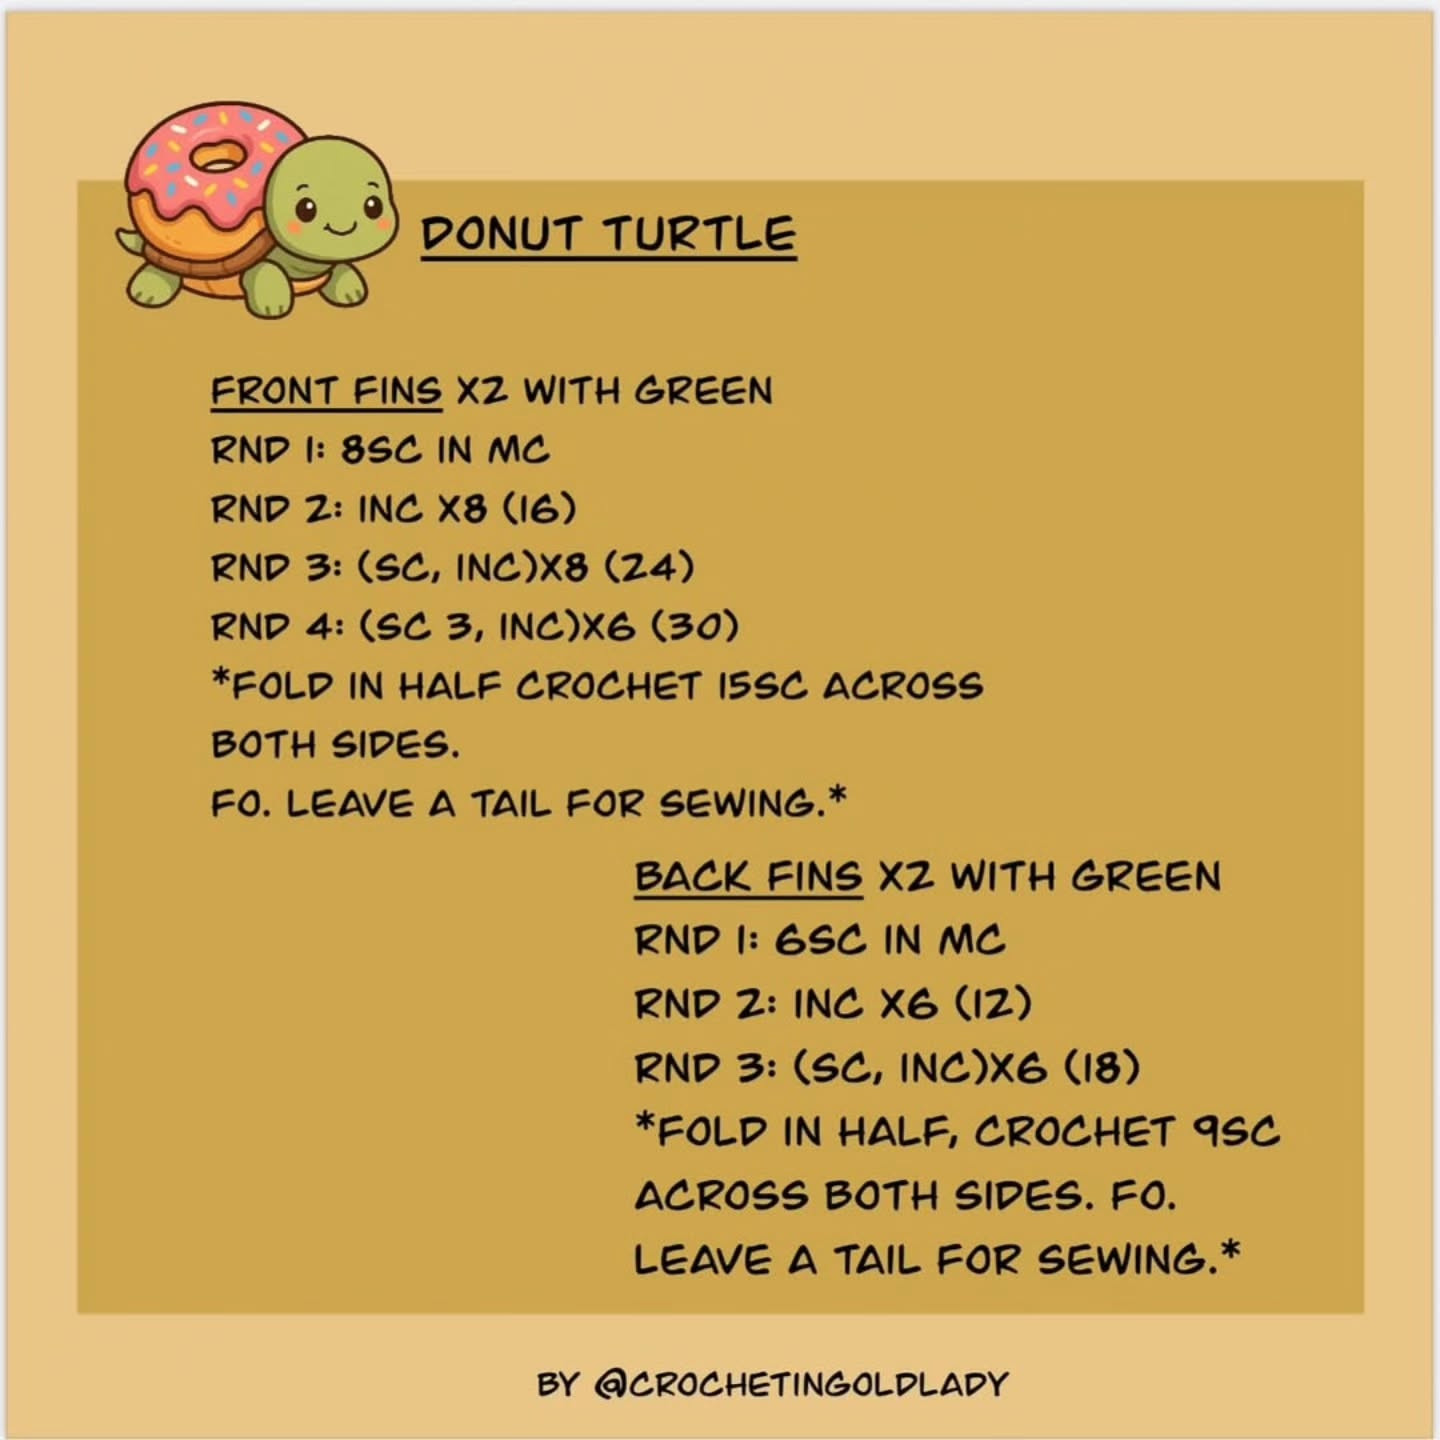 DONUT TURTLE
FRONT FINS X2 WITH GREEN
RND 1: 8SC IN MC
RND 2: INC X8 (16)
RND 3: (SC, INC)X8 (24)
RND 4: (SC 3, INC)X6 (30)
*FOLD IN HALF CROCHET 15SC ACROSS
BOTH SIDES.
FO. LEAVE A TAIL FOR SEWING.*
BACK FINS X2 WITH GREEN
RND 1: 6SC IN MC
RND 2: INC X6 (12)
RND 3: (SC, INC)X6 (18)
*FOLD IN HALF, CROCHET 9SC
ACROSS BOTH SIDES. FO.
LEAVE A TAIL FOR SEWING.*
BY @CROCHETINGOLDLADY